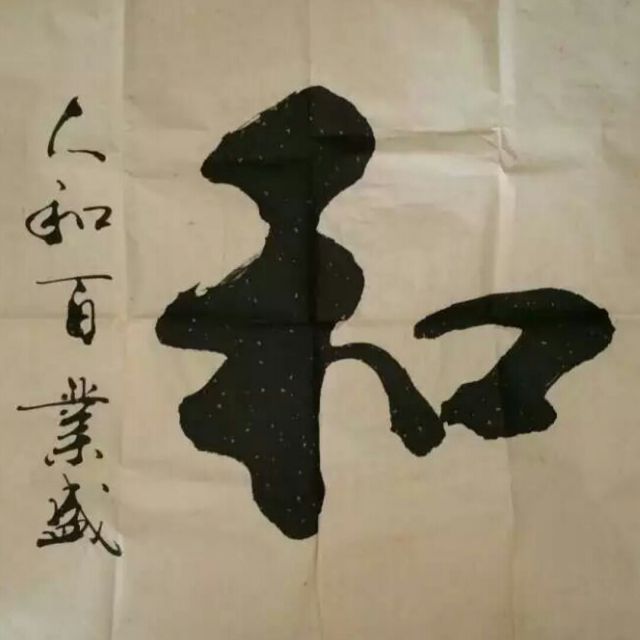 和
人和百業盛